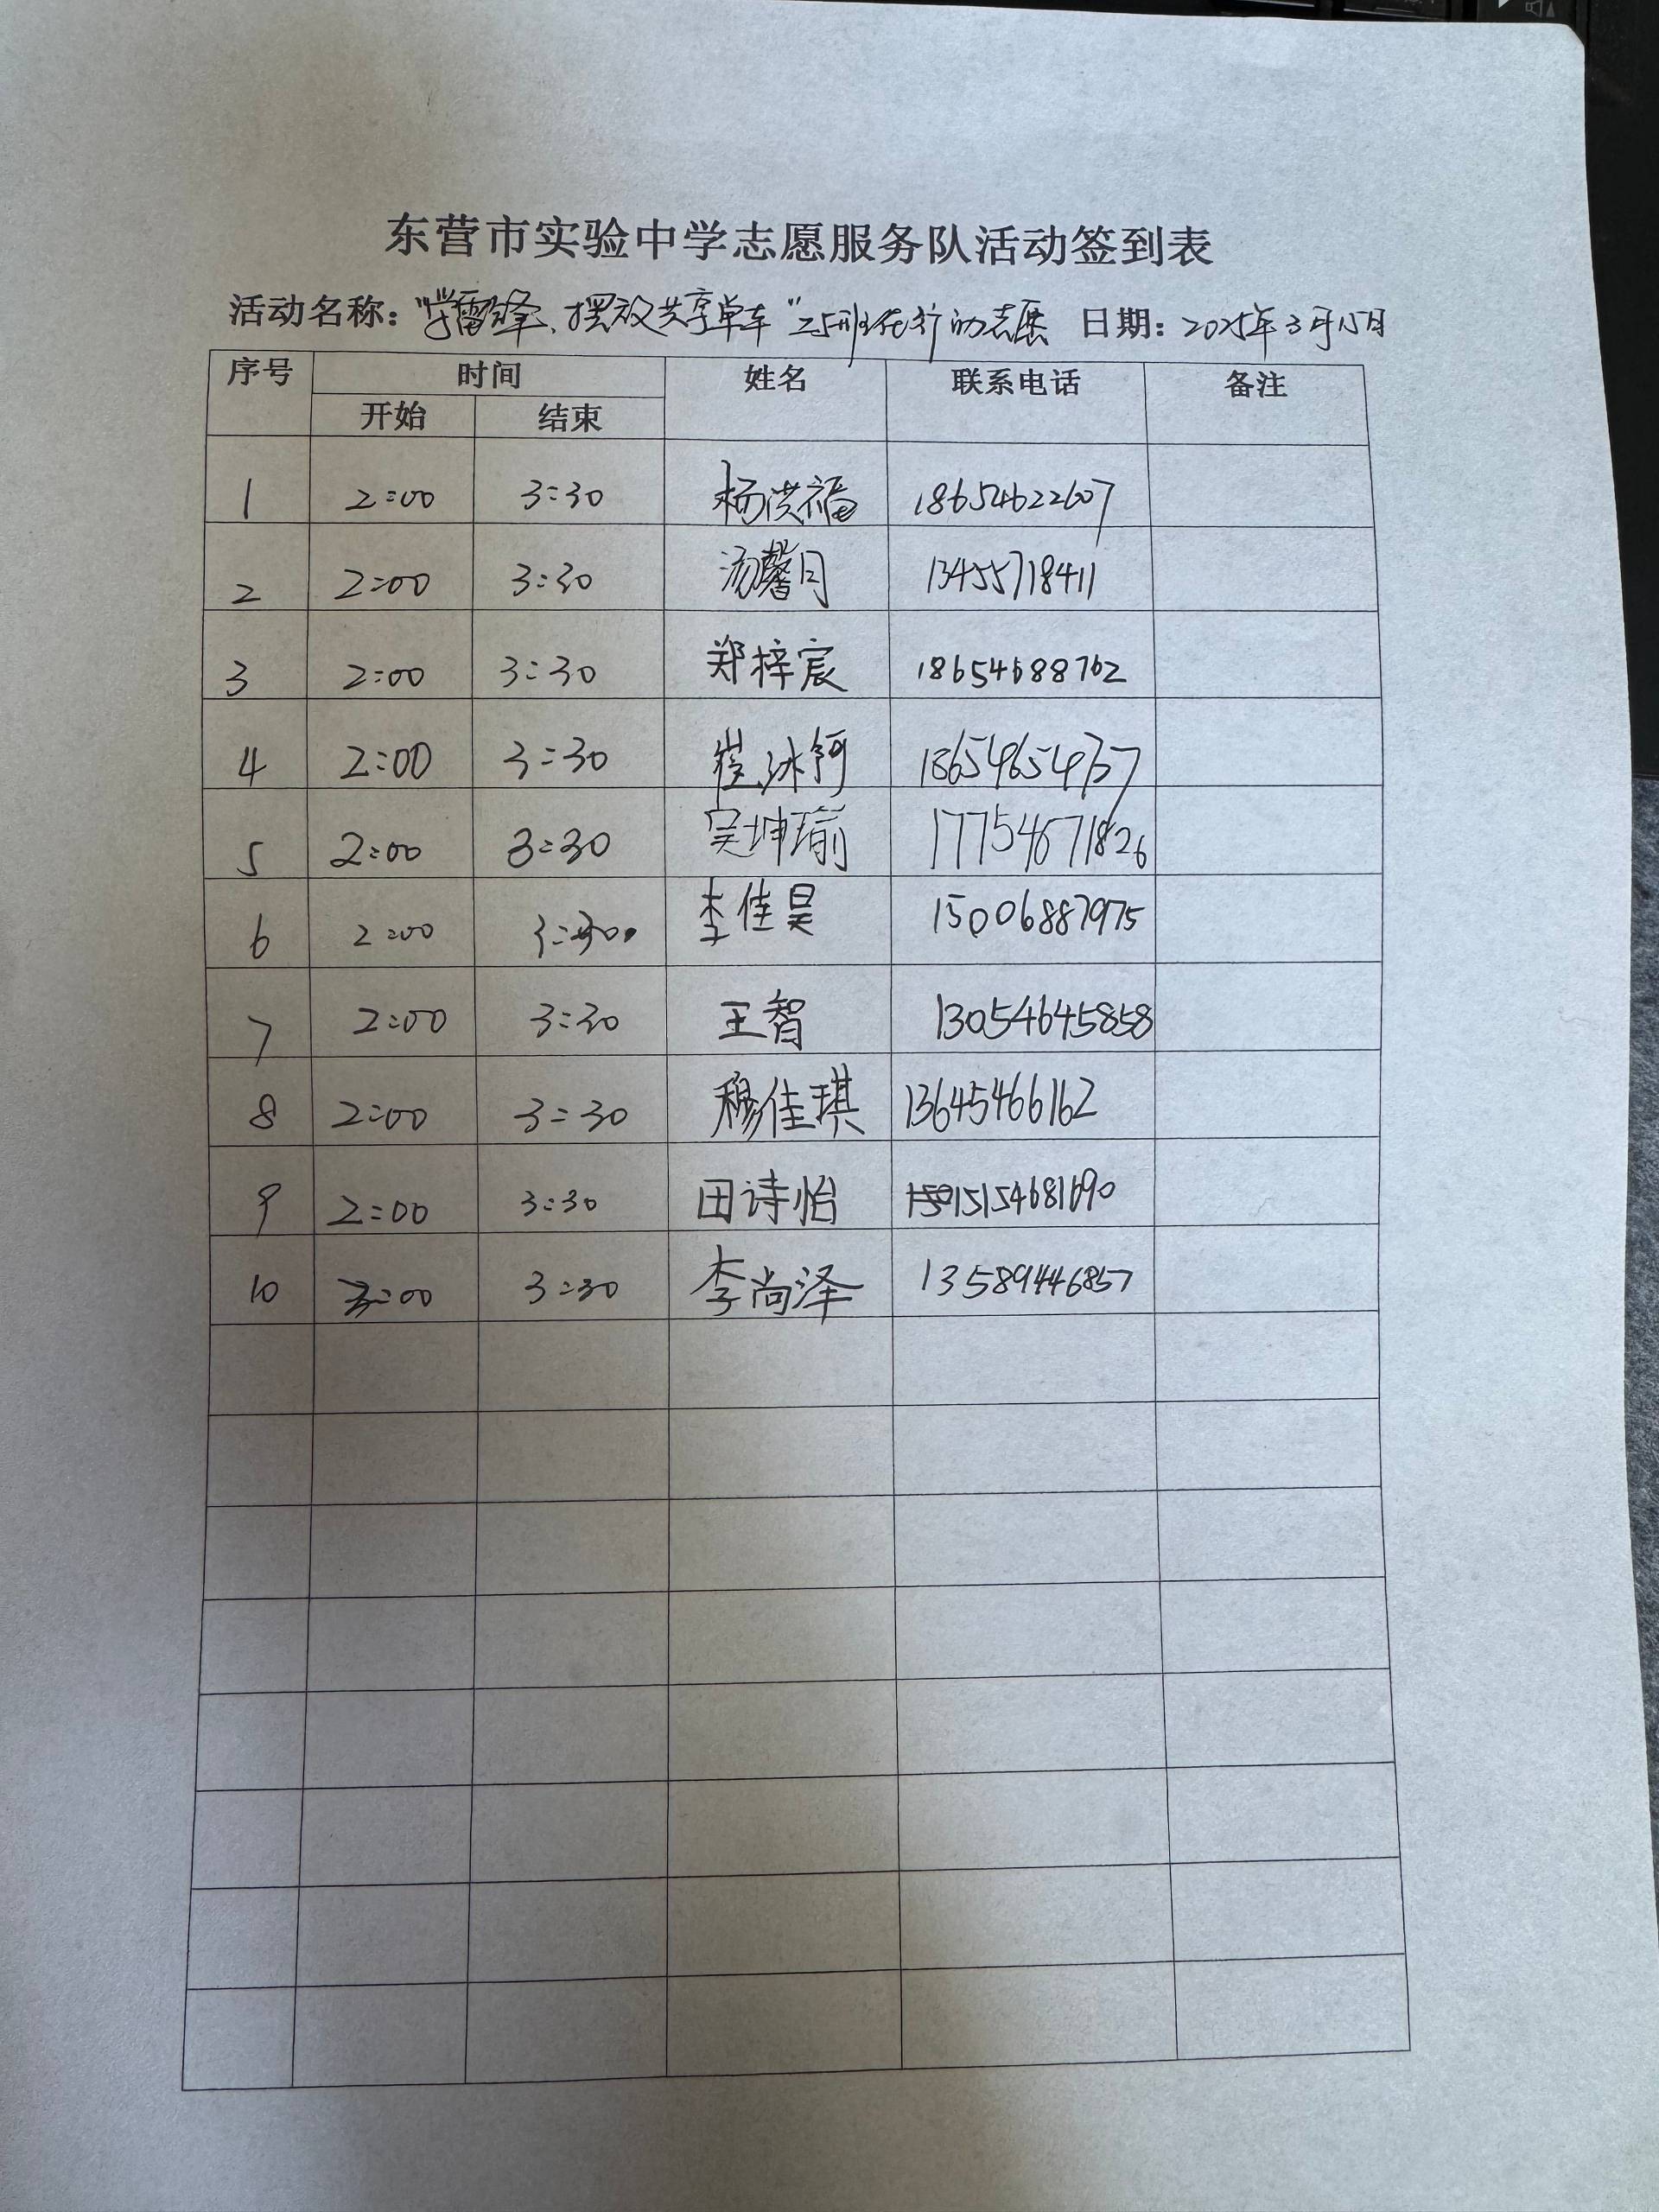 东营市实验中学志愿服务队活动签到表
活动名称："学雷锋、摆放共享单车"25班在行动志愿 日期：2025年3月15日
序号 时间 姓名 联系电话 备注
开始 结束
1 2:00 3:30 杨洪福 18654622607
2 2:00 3:30 汤馨月 13455718411
3 2:00 3:30 郑梓宸 18654688762
4 2:00 3:30 崔冰钶
5 2:00 3:30 吴坤瑜 17754671826
6 2:00 3:30 李佳昊 15006887975
7 2:00 3:30 王智 13054645858
8 2:00 3:30 穆佳琪 13645466162
9 2:00 3:30 田诗怡 15154681690
10 2:00 3:30 李尚泽 13589446857